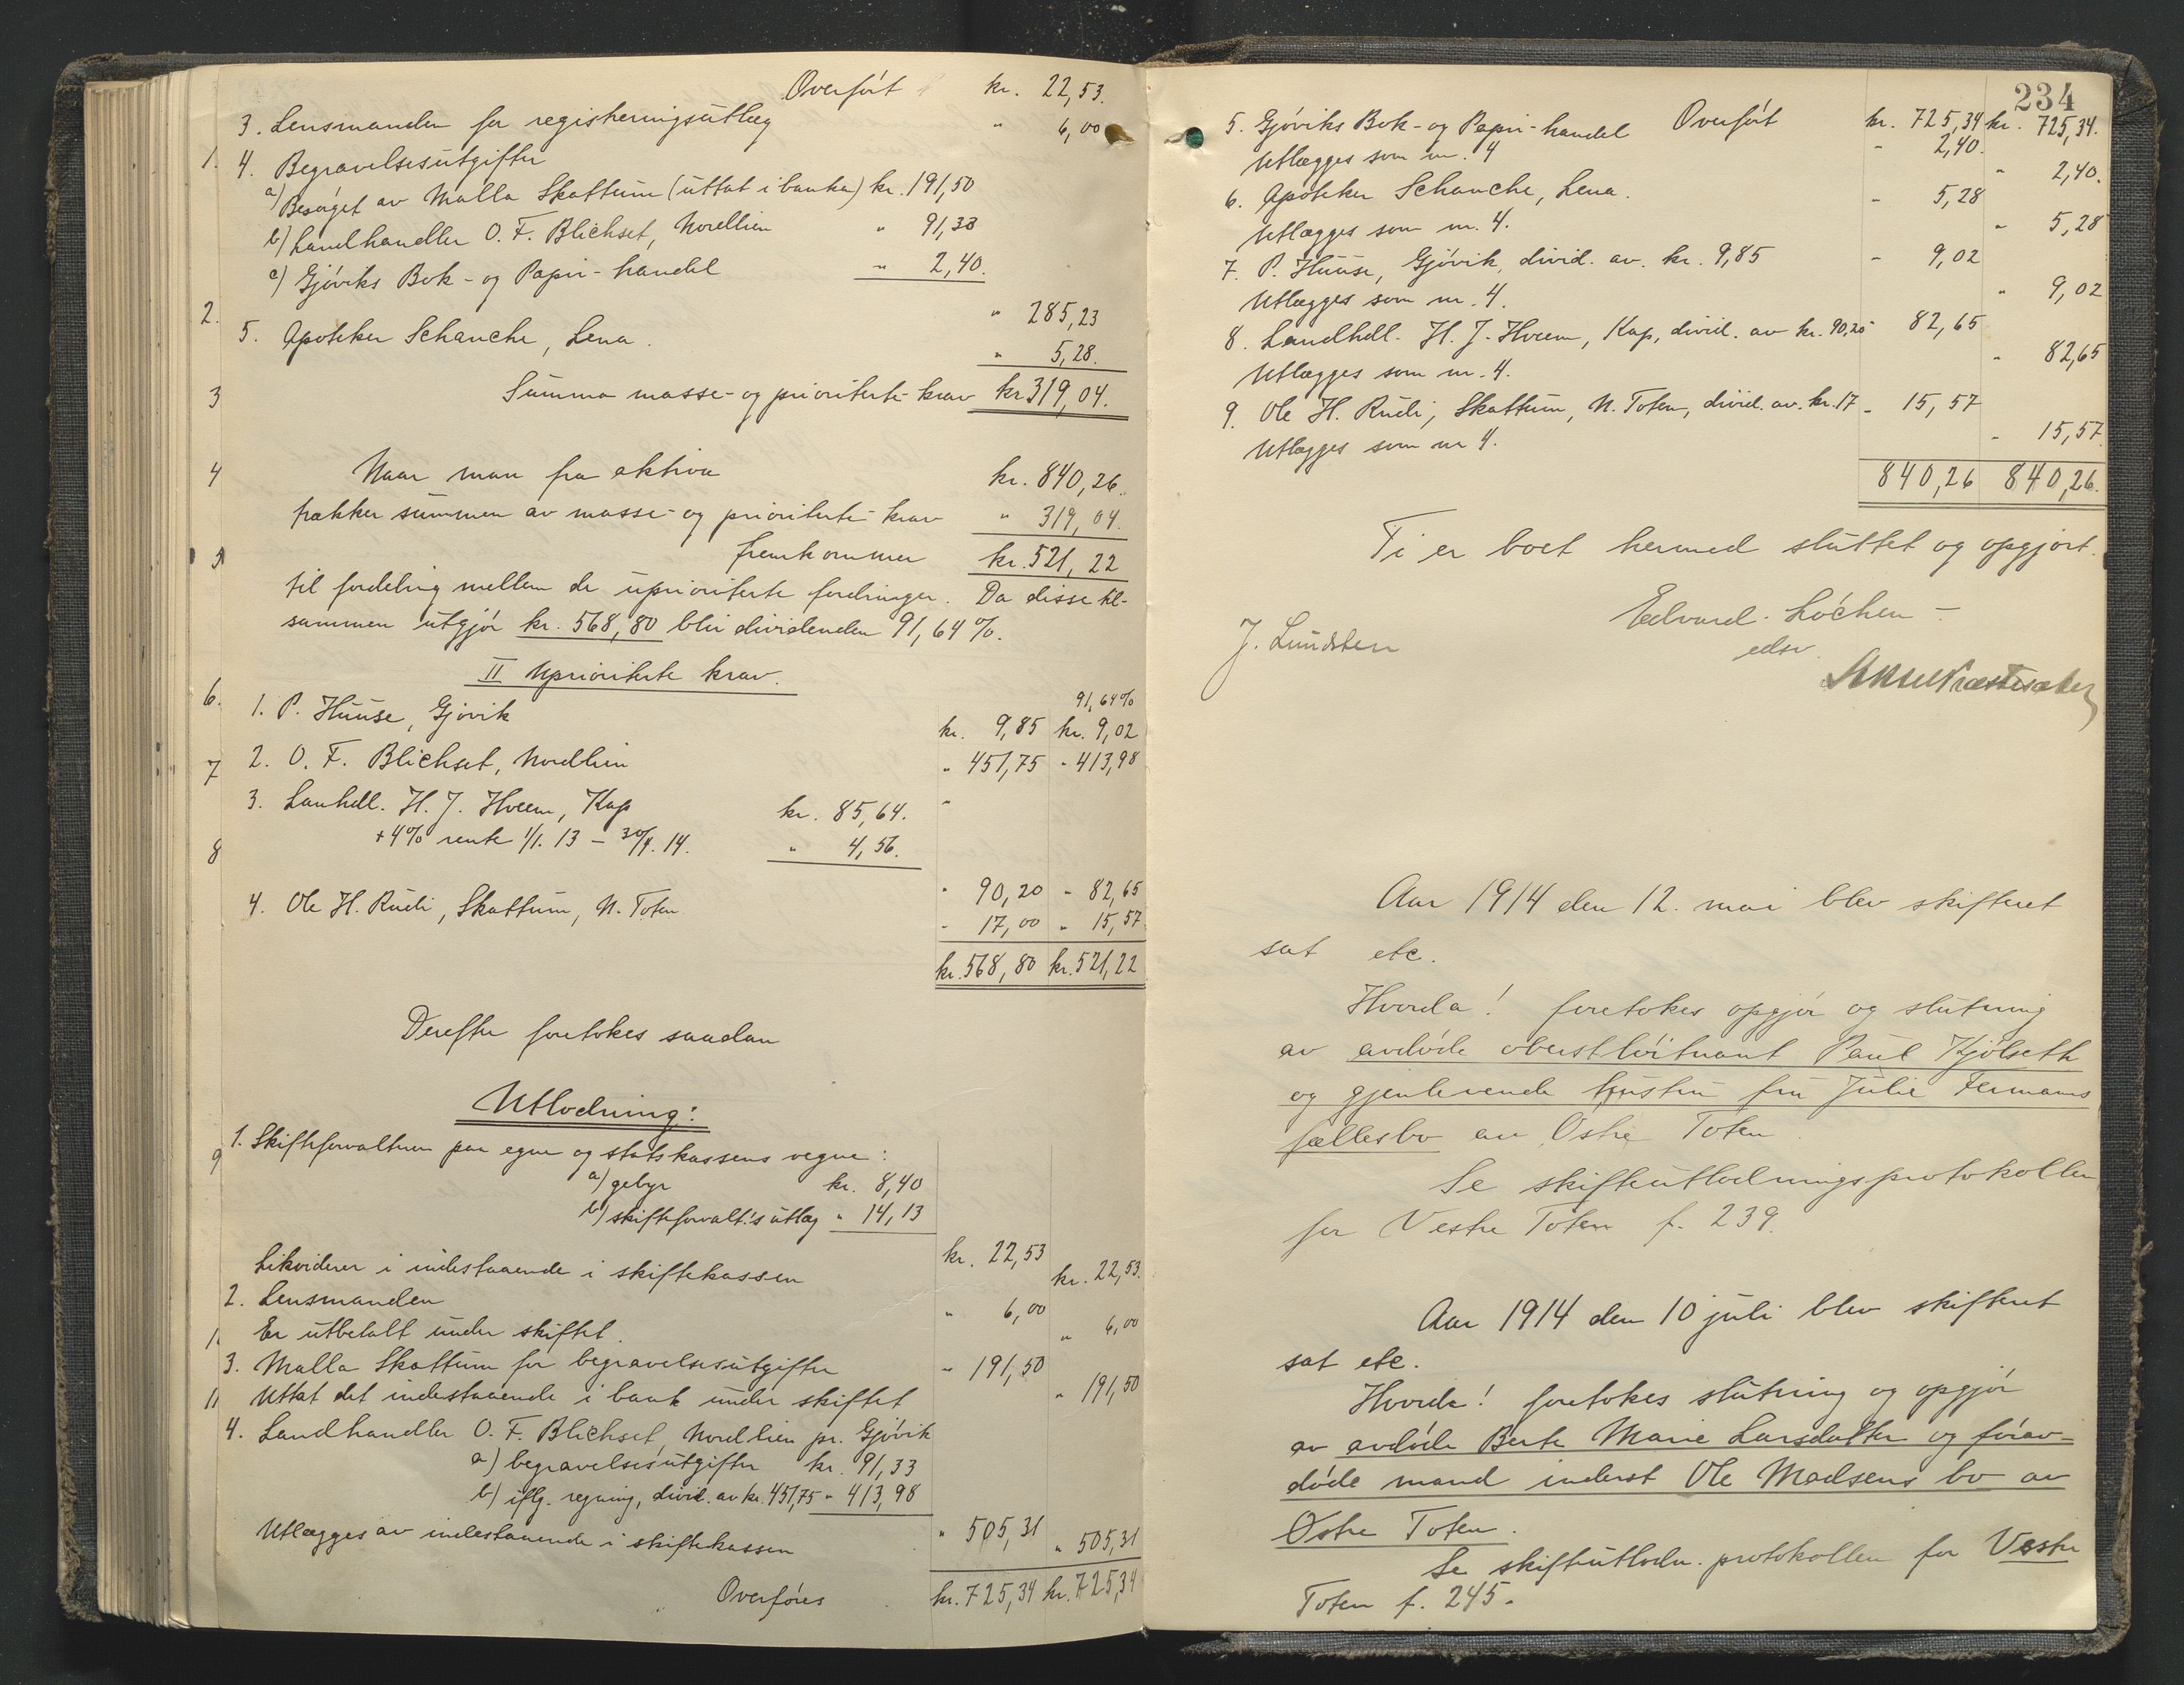 Overført kr. 22,53.
3. Lensmanden for registreringsutlæg " 6,00
1. 4. Begravelsesutgifter
a) Besørget av Malla Skattum (uttat i banken) kr. 191,50
b) Landhandler O. F. Blichset, Nordlien " 91,33
c) Gjøviks Bok- og Papir-handel " 2,40.
" 285,23
2. 5. Apoteker Schanche, Lena. " 5,28.
3 Summa masse- og prioriterte krav kr 319,04.
4 Naar man fra aktiva kr. 840,26.
trækker summen av masse- og prioriterte krav " 319,04.
5 fremkommer kr. 521,22
til fordeling mellem de uprioriterte fordringer. Da disse til-
sammen utgjør kr. 568,80 blir dividenden 91,64 %.
II Uprioriterte krav.
91,64%
6. 1. P. Huuse, Gjøvik kr. 9,85 kr. 9,02
7 2. O. F. Blichset, Nordlien " 451,75 " 413,98
3. Lanhdl. H. J. Hveem, Kap kr. 85,64. "
8 + 4% rente 1/1. 13 – 30/4. 14. " 4,56.
" 90,20 " 82,65
4. Ole H. Rudi, Skattum, N. Toten " 17,00 " 15,57
kr. 568,80 kr. 521,22
Derefter foretokes saadan
Utlodning:
9 1. Skifteforvalteren paa egne og statskassens vegne:
a) gebyr kr. 8,40
b) skifteforvalt.'s utlæg " 14,13
kr. 22,53
Likviderer i indestaaende i skiftekassen kr. 22,53.
2. Lensmanden " 6,00
1. Er utbetalt under skiftet. " 6,00
3. Malla Skattum for begravelsesutgifter " 191,50
11 Uttat det indestaaende i bank under skiftet " 191,50
4. Landhandler O. F. Blichset, Nordlien pr. Gjøvik
a) begravelsesutgifter kr. 91,33
b) iflg. regning, divid. av kr. 451,75 " 413,98
" 505,31
Utlægges av indestaaende i skiftekassen " 505,31
Overføres kr. 725,34 kr. 725,34
234
Overført kr. 725,34 kr. 725,34.
5. Gjøviks Bok- og Papir-handel - 2,40.
Utlægges som nr. 4 " 2,40.
6. Apoteker Schanche, Lena. - 5,28
Utlægges som nr. 4. " 5,28
7. P. Huuse, Gjøvik, divid. av. kr. 9,85 - 9,02
Utlægges som nr. 4. " 9,02
8. Landhdl. H. J. Hveem, Kap, divid. av kr. 90,20 82,65
Utlægges som nr. 4. " 82,65
9. Ole H. Rudi, Skattum, N. Toten, divid. av. kr. 17 - 15,57
Utlægges som nr 4. " 15,57.
840,26 840,26.
Ti er boet hermed sluttet og opgjort.
Edvard Løchen –
edsv.
J. Lundsten
Aar 1914 den 12. mai blev skifteret
sat etc.
Hvorda! foretokes opgjør og slutning
av avdøde oberstløitnant Paul Kjølseth
og gjenlevende hustru fru Julie Fermanns
fællesbo av Østre Toten.
Se skifteutlodningsprotokollen
for Vestre Toten f. 239.
Aar 1914 den 10 juli blev skifteret
sat etc.
Hvorda! foretokes slutning og opgjør
av avdøde Berte Marie Larsdatter og førav-
døde mand inderst Ole Madsens bo av
Østre Toten.
Se skifteutlodn. protokollen for Vestre
Toten f. 245.